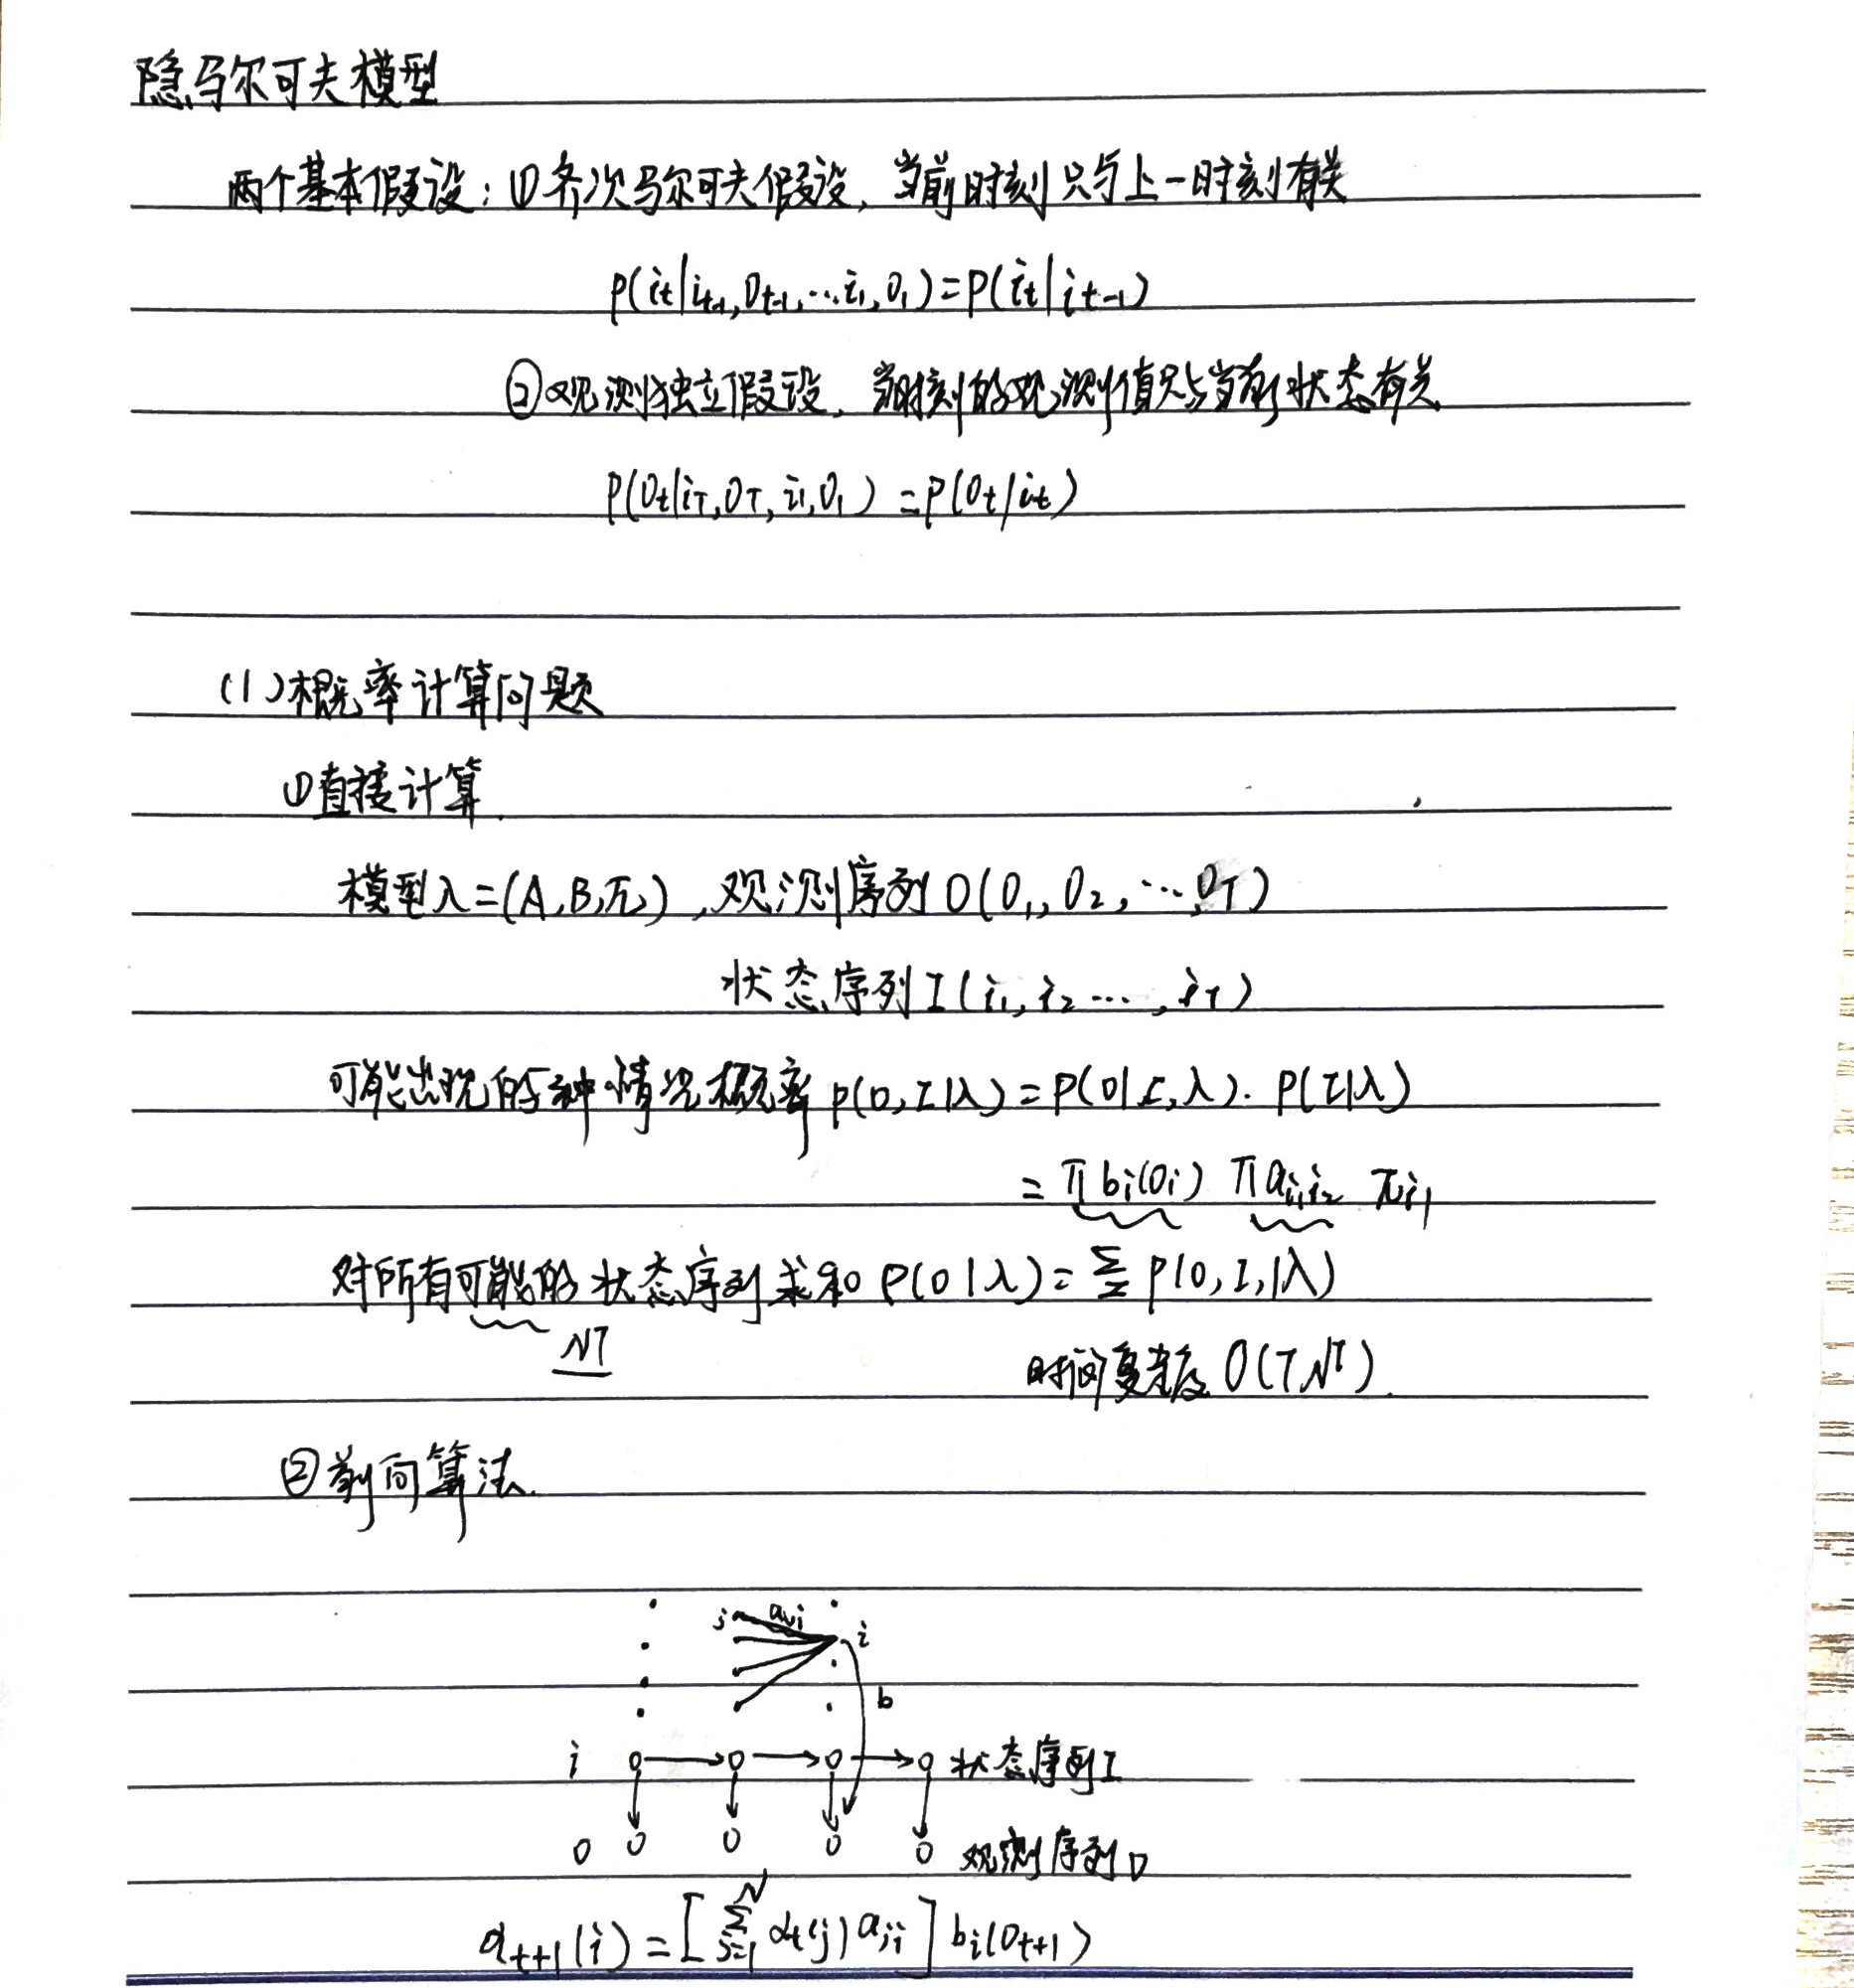 隐马尔可夫模型
两个基本假设：①齐次马尔可夫假设，当前时刻只与上一时刻有关
P(it|it-1,Ot-1,…i1,O1)=P(it|it-1)
②观测独立假设，当前时刻的观测值只与当前状态有关
P(Ot|iT,OT,i1,O1)=P(Ot|it)
(1)概率计算问题
①直接计算
模型λ=(A,B,π),观测序列O(O1,O2,…,OT)
状态序列I(i1,i2…,iT)
可能出现的 种情况概率P(O,I|λ)=P(O|I,λ)·P(I|λ)
=Πbi(Oi) Πai1i2 πi1
对所有可能的状态序列求和P(O|λ)=ΣI P(O,I,|λ)
N^T
时间复杂度O(TN^T).
②前向算法.
j aji i
b
i 状态序列I
O O O O O 观测序列O
αt+1(i)=[Σ_{j=1}^{N} αt(j)aji]bi(Ot+1)